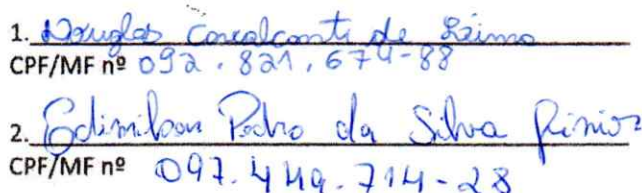 1. Douglas Cavalcanti de Lima
CPF/MF nº 092.821.674-88
2. Edimilson Pedro da Silva Júnior
CPF/MF nº 097.449.714-28